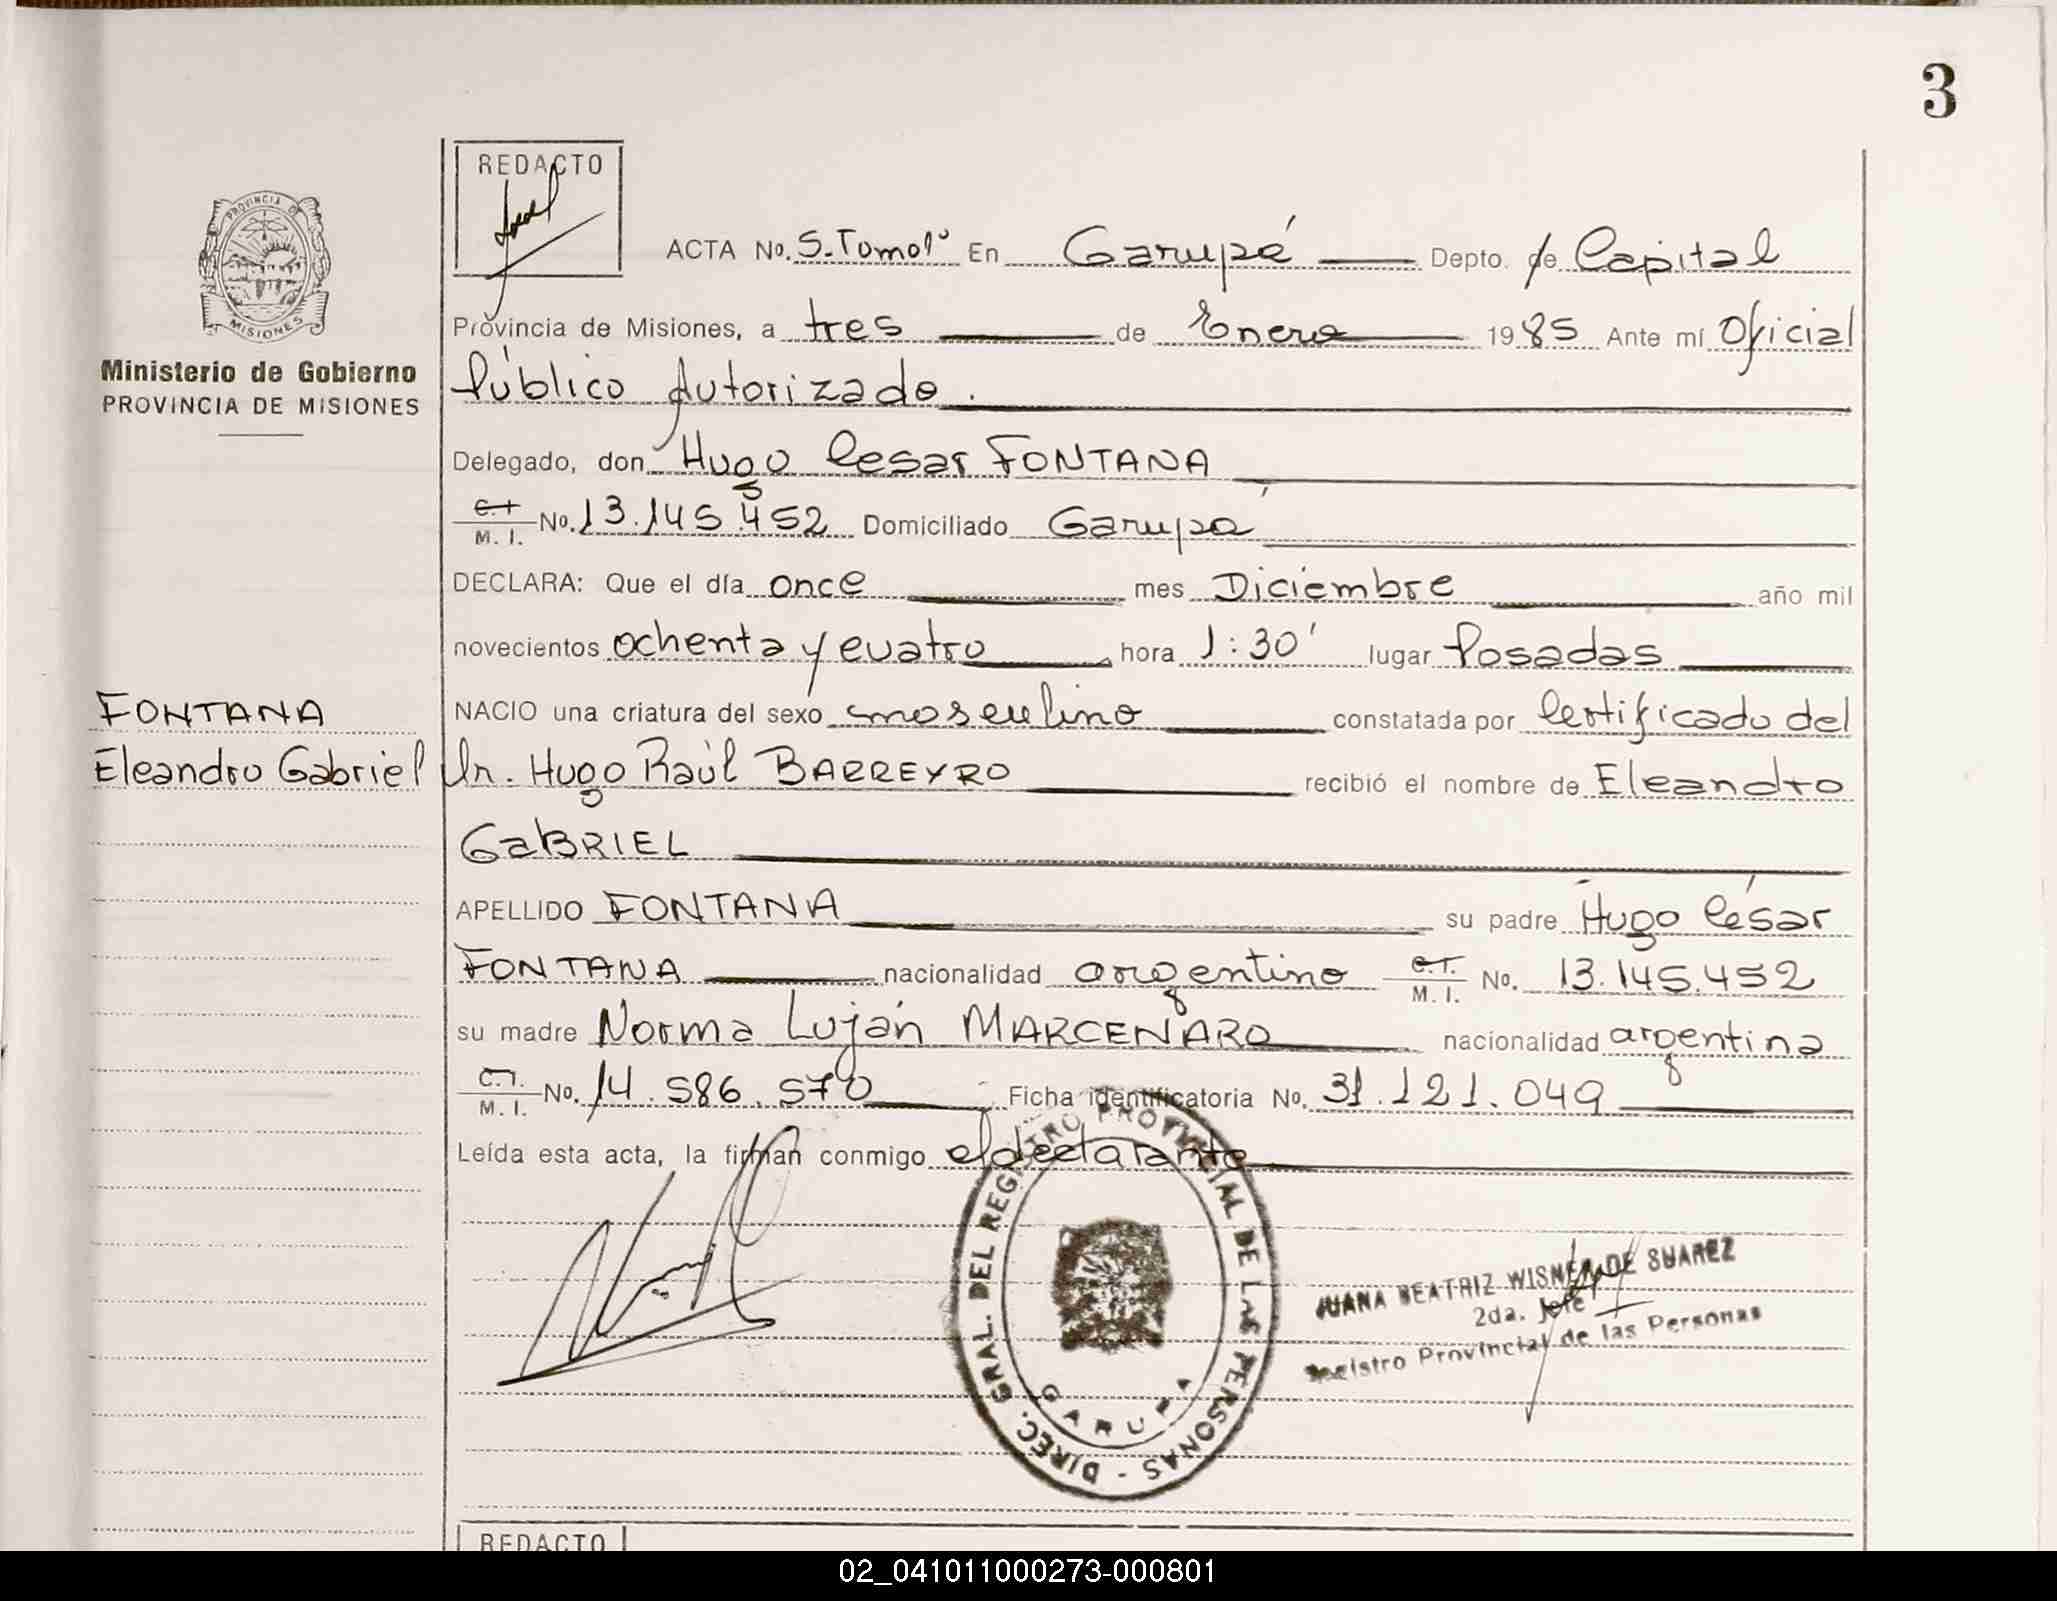 3
REDACTO
PROVINCIA DE
MISIONES
Ministerio de Gobierno
PROVINCIA DE MISIONES
ACTA No. 5-Tomo1º En Garupá Depto. de Capital
Provincia de Misiones, a tres de Enero 1985 Ante mí Oficial
Público Autorizado.
Delegado, don Hugo Cesar FONTANA
C.I. M. I. No. 13.145.452 Domiciliado Garupá
DECLARA: Que el día once mes Diciembre año mil
novecientos ochenta y cuatro hora 1:30' lugar Posadas
NACIO una criatura del sexo masculino constatada por Certificado del
FONTANA
Eleandro Gabriel
Dr. Hugo Raúl BARREYRO recibió el nombre de Eleandro
GaBRIEL
APELLIDO FONTANA su padre Hugo César
FONTANA nacionalidad argentino C.I. M. I. No. 13.145.452
su madre Norma Luján MARCENARO nacionalidad argentina
C.I. M. I. No. 14.586.570 Ficha identificatoria No. 31.121.049
Leída esta acta, la firman conmigo el declarante
DIREC. GRAL. DEL REGISTRO PROVINCIAL DE LAS PERSONAS -
GARUPA
JUANA BEATRIZ WISNER DE SUAREZ
2da. Jefe
Registro Provincial de las Personas
REDACTO
02_041011000273-000801